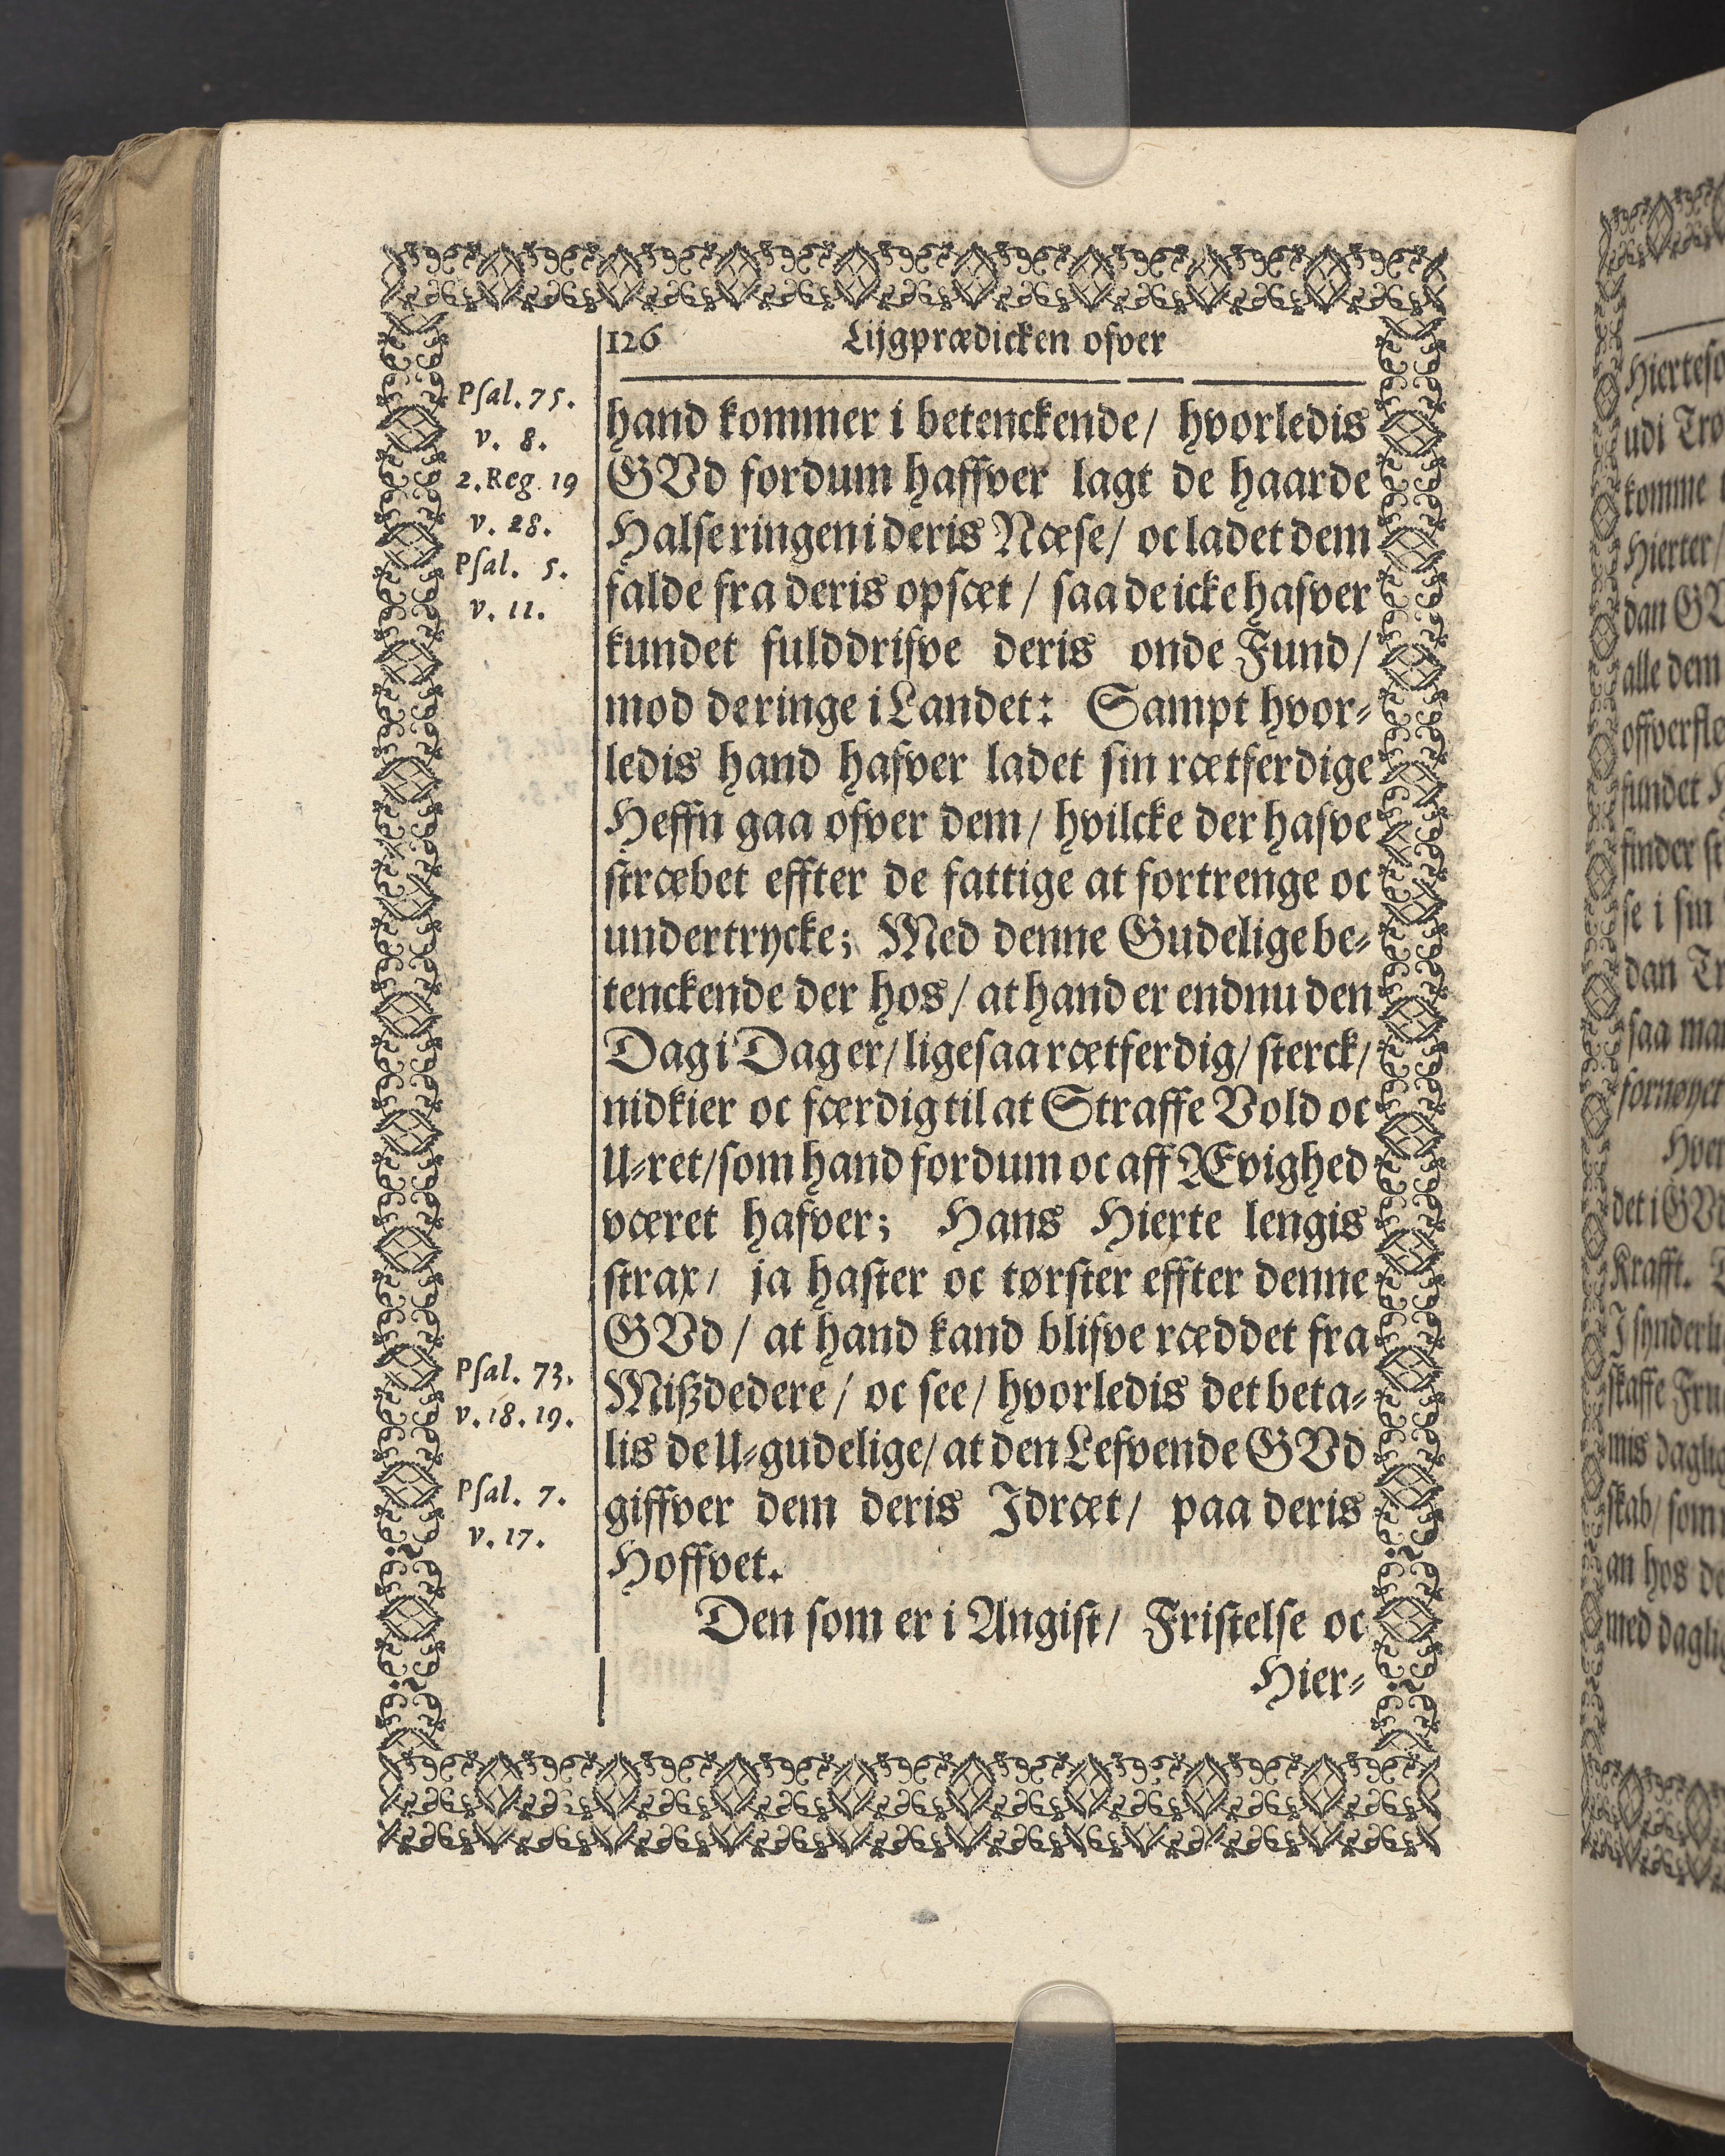 126 Lijgprædicken ofver
Psal. 75.
v. 8.
2. Reg. 19
v. 28.
Psal. 5.
v. 11.
hand kommer i betenckende / hvorledis
GVd fordum haffver lagt de haarde
Halse ringen i deris Næse / oc ladet dem
falde fra deris opsæt / saa de icke hafver
kundet fulddrifve deris onde Fund /
mod de ringe i Landet: Sampt hvor-
ledis hand hafver ladet sin rætferdige
Heffn gaa ofver dem / hvilcke der hafve
stræbet effter de fattige at fortrenge oc
undertrycke; Med denne Gudelige be-
tenckende der hos / at hand er endnu den
Dag i Dag er / lige saa rætferdig / sterck /
nidkier oc færdig til at Straffe Vold oc
U-ret / som hand fordum oc aff Ævighed
været hafver; Hans Hierte lengis
strax / ja haster oc tørster effter denne
GVd / at hand kand blifve ræddet fra
Mißdedere / oc see / hvorledis det beta-
lis de U-gudelige / at den Lefvende GVd
giffver dem deris Jdræt / paa deris
Hoffvet.
Psal. 73.
v. 18. 19.
Psal. 7.
v. 17.
Den som er i Angist / Fristelse oc
Hier-
Hierteso
udi Tro
komme
Hierter /
dan GV
alle dem
offverflø
fundet
finder
se i sin
dan Tr
saa man
fornøyet
Hver
det i GVd
Krafft.
J synderli
skaffe Fru
mis daglig
skab / som
an hos de
med daglig